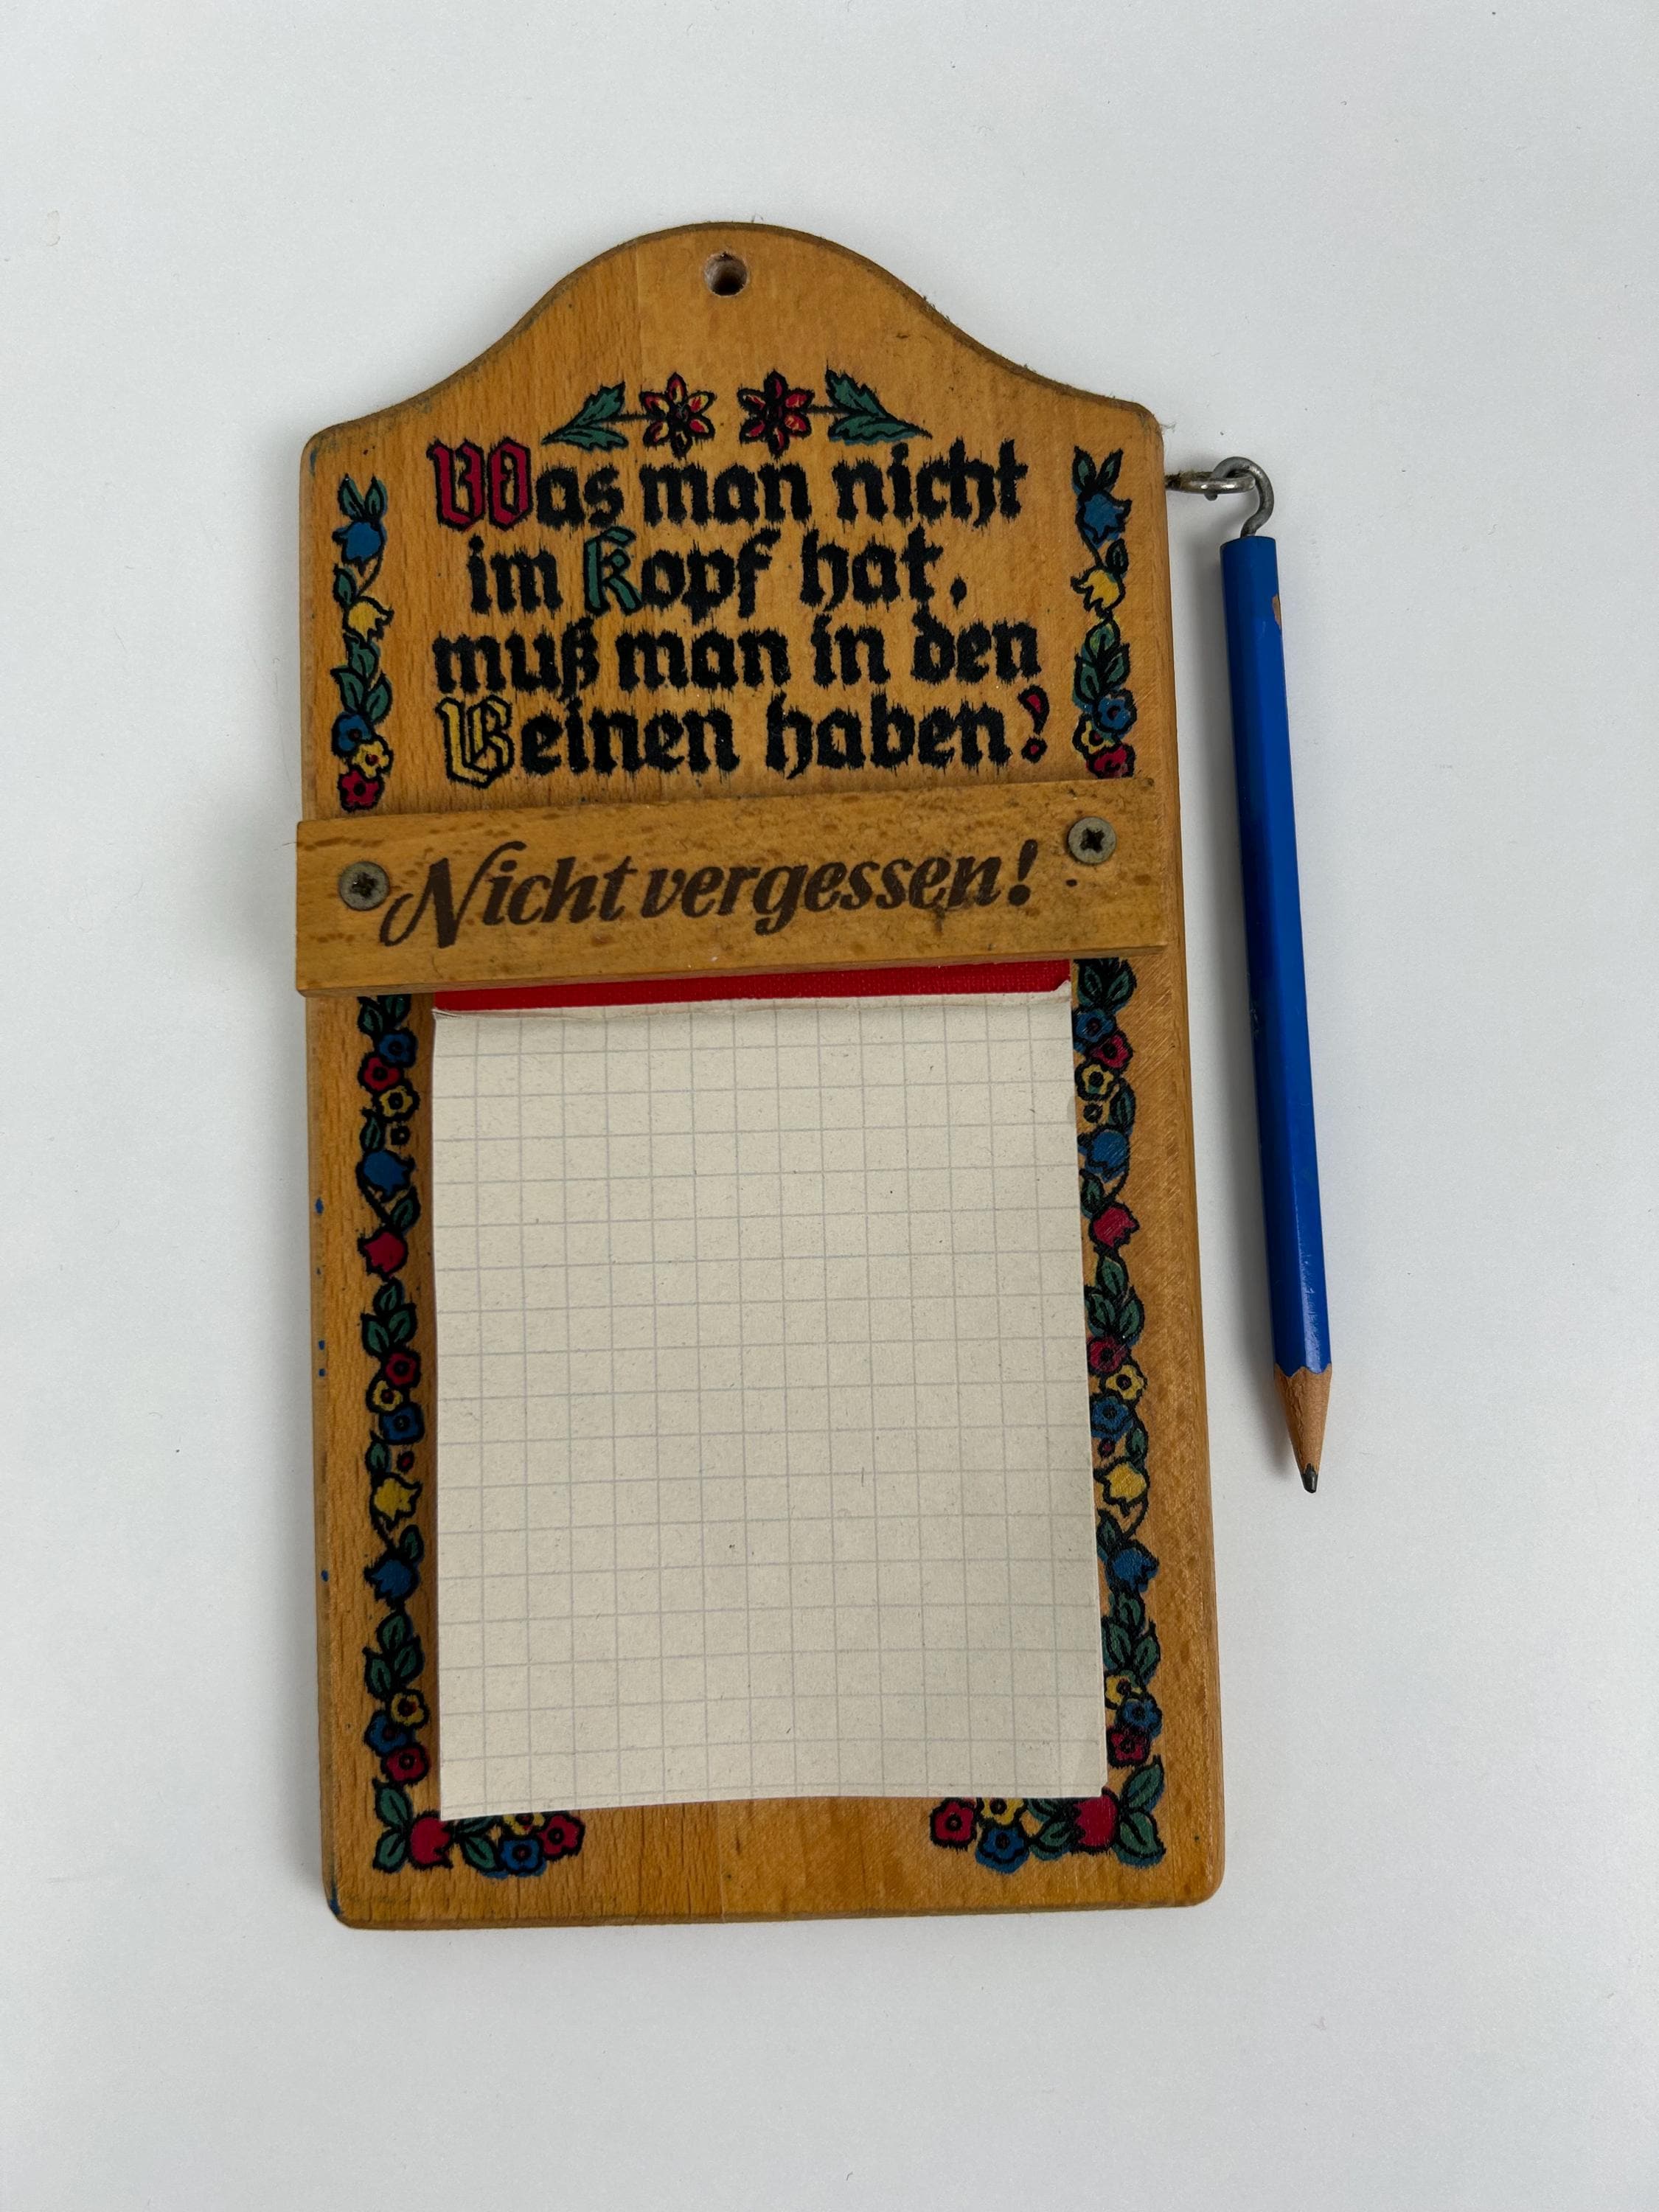 Was man nicht
im Kopf hat,
muß man in den
Beinen haben!
Nicht vergessen!